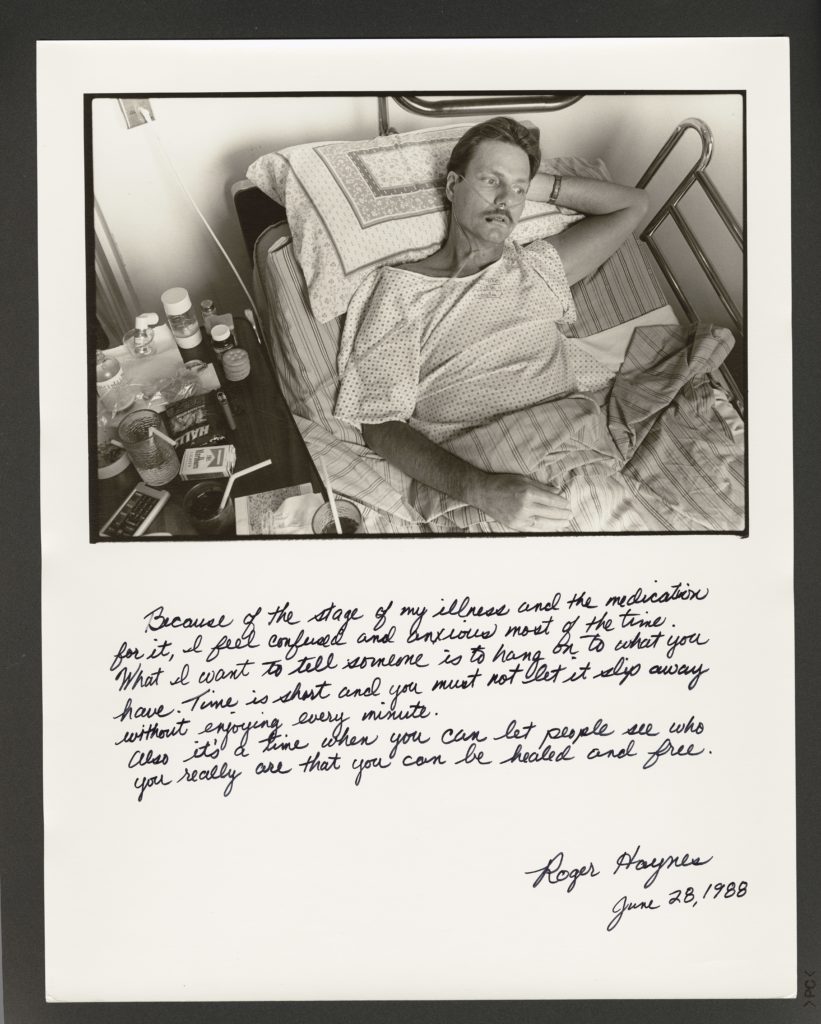 HALLS
Marlboro
Because of the stage of my illness and the medication
for it, I feel confused and anxious most of the time.
What I want to tell someone is to hang on to what you
have. Time is short and you must not let it slip away
without enjoying every minute.
Also it's a time when you can let people see who
you really are that you can be healed and free.
Roger Haynes
June 28, 1988
>PC<